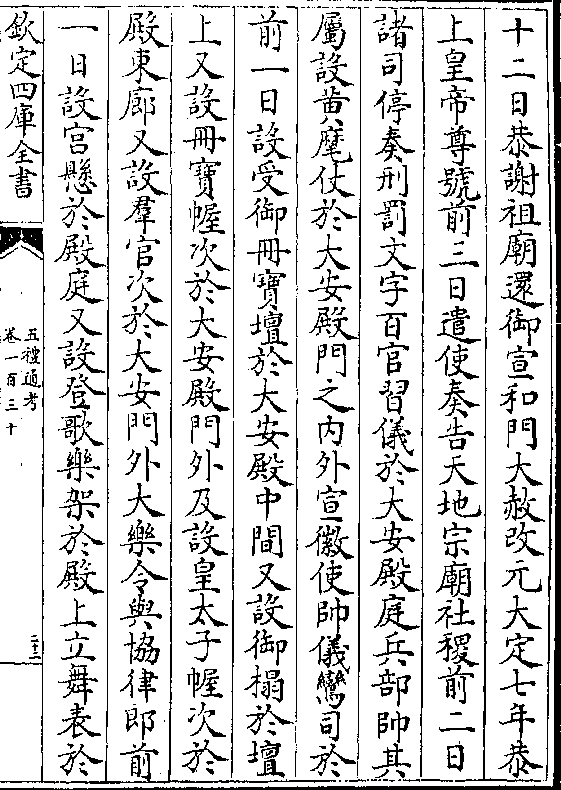 十二日恭謝祖廟還御宣和門大赦改元大定七年恭
上皇帝尊號前三日遣使奏告天地宗廟社稷前二日
諸司停奏刑罰文字百官習儀於大安殿庭兵部帥其
屬設黄麾仗於大安殿門之内外宣徽使帥儀鸞司於
前一日設受御冊寶壇於大安殿中間又設御榻於壇
上又設冊寶幄次於大安殿門外及設皇太子幄次於
殿東廊又設羣官次於大安門外大樂令與協律郎前
一日設宫懸於殿庭又設登歌樂架於殿上立舞表於
欽定四庫全書
五禮通考
卷一百三十
二十二